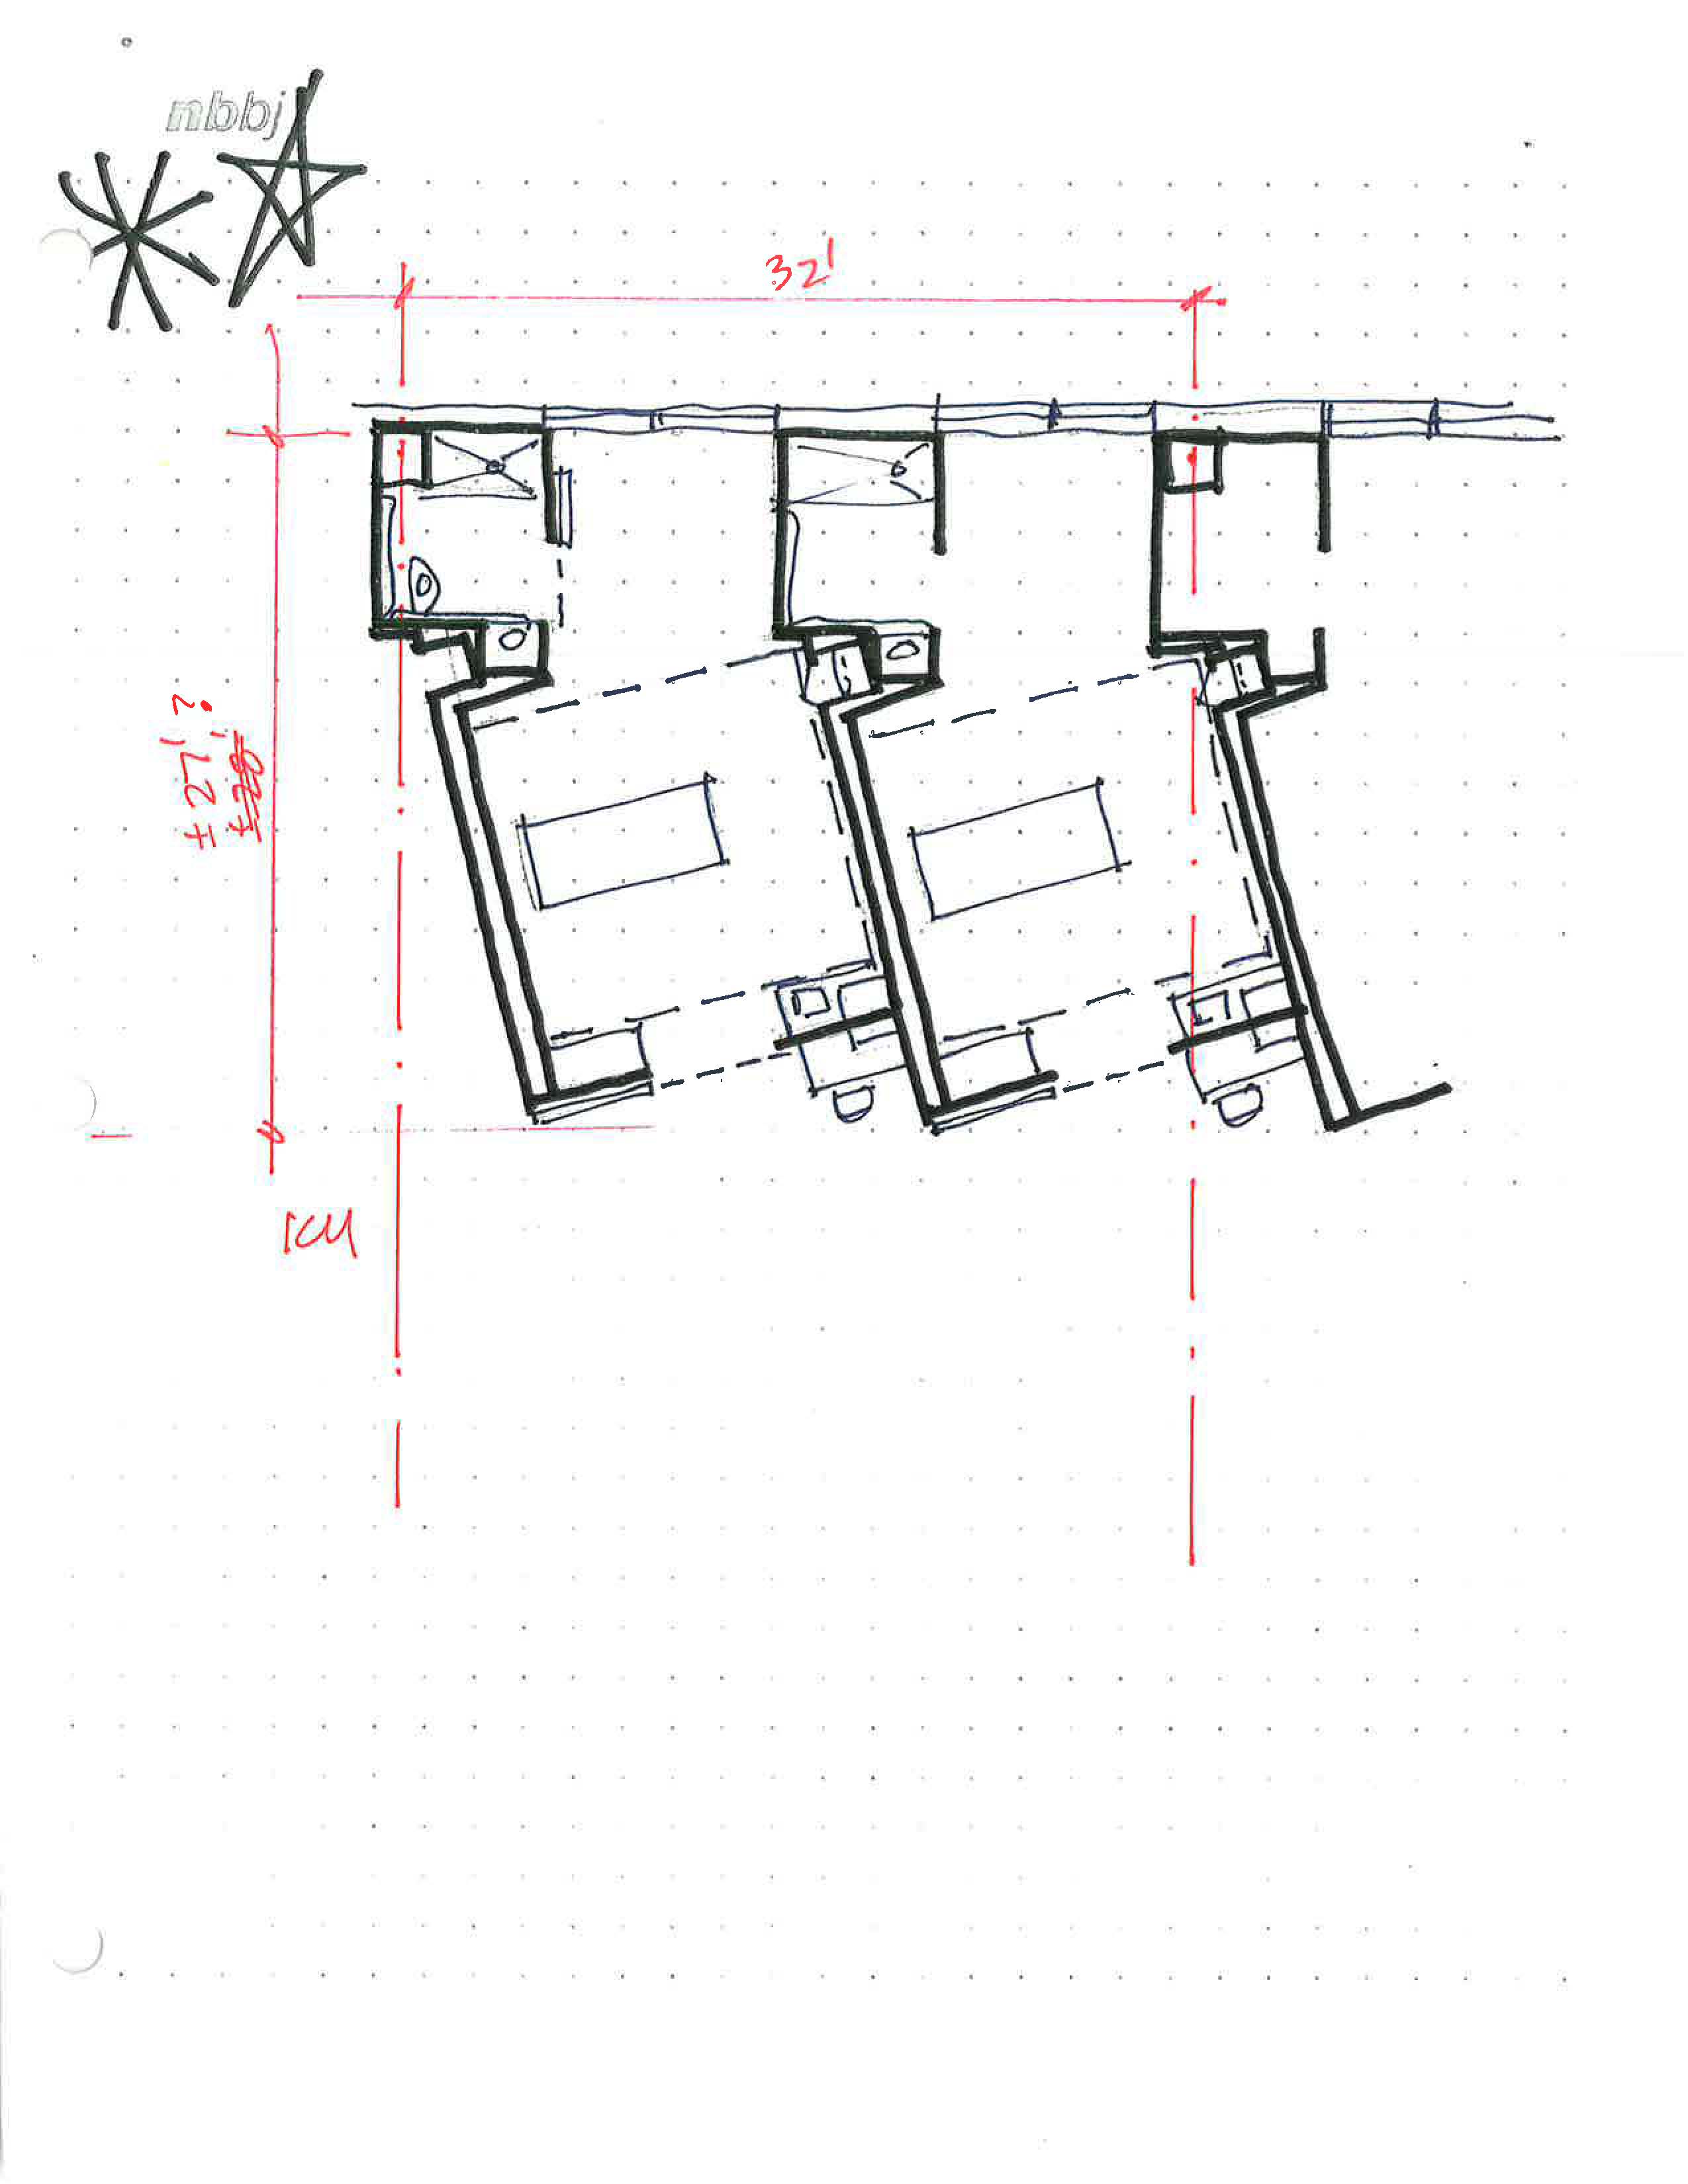 nbbj
32'
± 27'?
± 28'
ICU